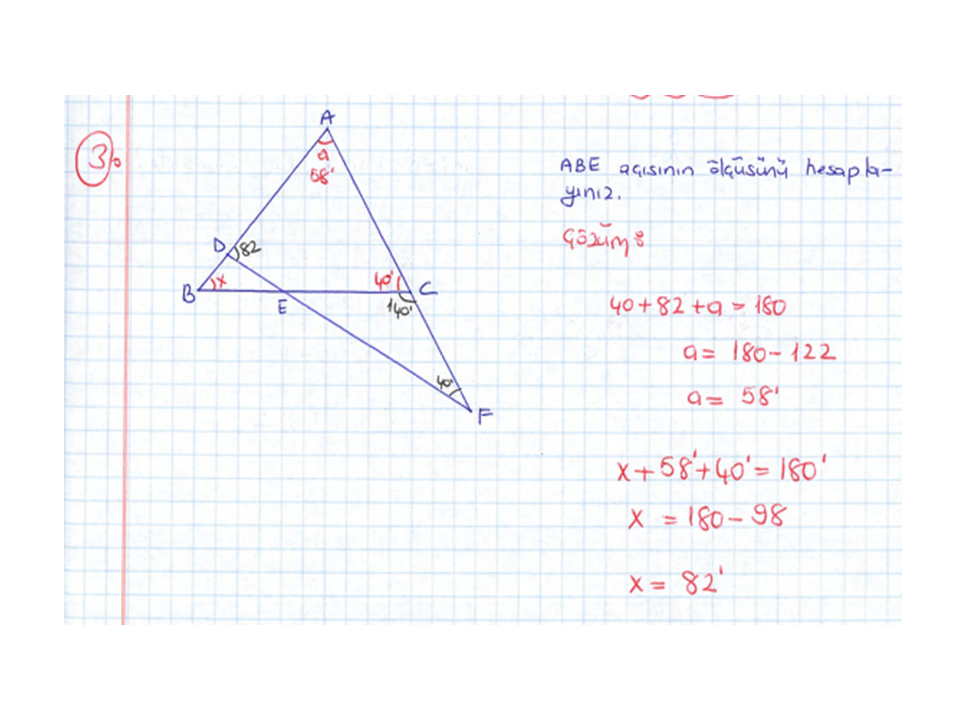 3%
A
a
58'
D
82
B
x
40'
C
E
140'
40
F
ABE açısının ölçüsünü hesapla-
yınız.
Çözüm:
40+82+a=180
a= 180-122
a= 58'
x+58'+40'=180'
x = 180-98
x= 82'